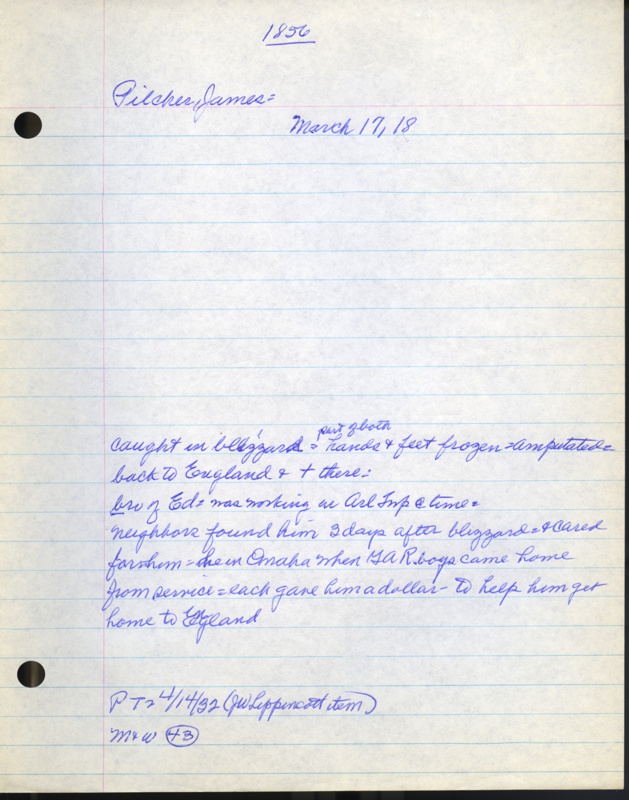 1856
Pilcher, James=
March 17, 18
part of both
caught in blizzard = hands & feet frozen = amputated=
back to England & + there=
bro of Ed= was working in Arl Twp @ time=
neighbors found him 3 days after blizzard = & cared
for him = he in Omaha when GAR boys came home
from service = each gave him a dollar - to help him get
home to England
P T= 4/14/32 (JW Lippincott item)
M & W 43